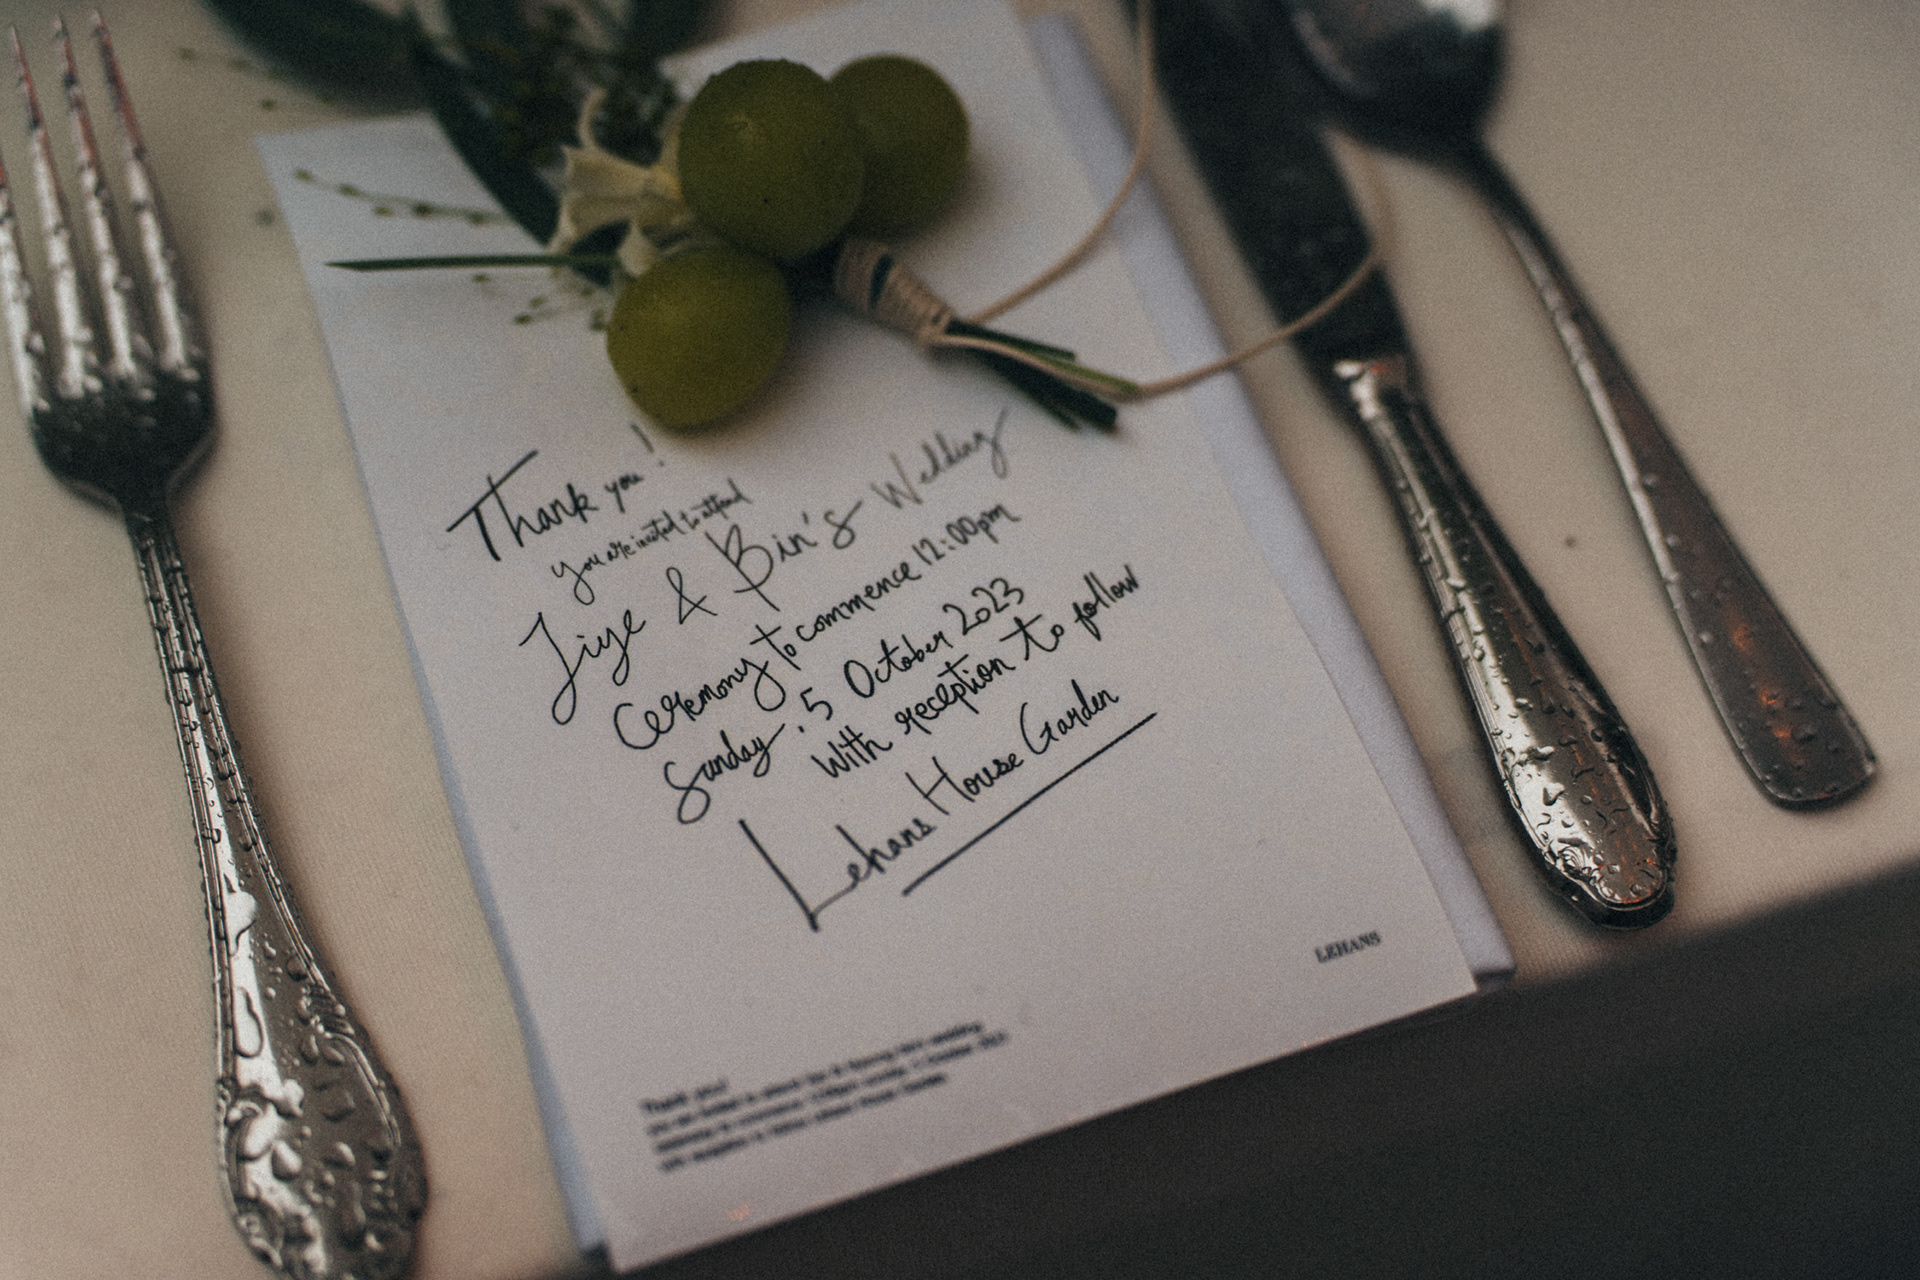 Thank you!
you are invited to attend
Jiye & Bin's Wedding
Ceremony to commence 12:00pm
Sunday, 5 October 2023
With reception to follow
Lehans House Garden
LEHANS
Thank you!